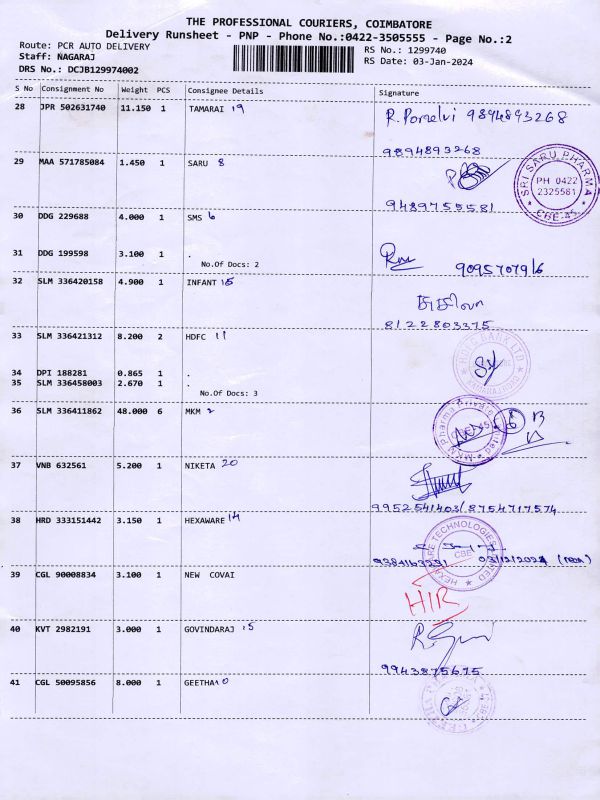 THE PROFESSIONAL COURIERS, COIMBATORE
Delivery Runsheet - PNP - Phone No.:0422-3505555 - Page No.:2
Route: PCR AUTO DELIVERY
RS No.: 1299740
Staff: NAGARAJ
RS Date: 03-Jan-2024
DRS No.: DCJB129974002
S No Consignment No Weight PCS Consignee Details Signature
28 JPR 502631740 11.150 1 TAMARAI 19
9894893268
9894893268
29 MAA 571785084 1.450 1 SARU 8
SRI SARU PHARMA
PH 0422
2325581
CBE-45
9489755581
30 DDG 229688 4.000 1 SMS 6
31 DDG 199598 3.100 1 .
No.Of Docs: 2
32 SLM 336420158 4.900 1 INFANT 15
8122803375
33 SLM 336421312 8.200 2 HDFC 11
34 DPI 188281 0.865 1 .
35 SLM 336458003 2.670 1 .
No.Of Docs: 3
36 SLM 336411862 48.000 6 MKM 2
37 VNB 632561 5.200 1 NIKETA 20
9952541403/8754717574
38 HRD 333151442 3.150 1 HEXAWARE 14
HEXAWARE TECHNOLOGIES LIMITED
CBE
39 CGL 90008834 3.100 1 NEW COVAI
HIR
40 KVT 2982191 3.000 1 GOVINDARAJ 15
9943875675
41 CGL 50095856 8.000 1 GEETHA 10